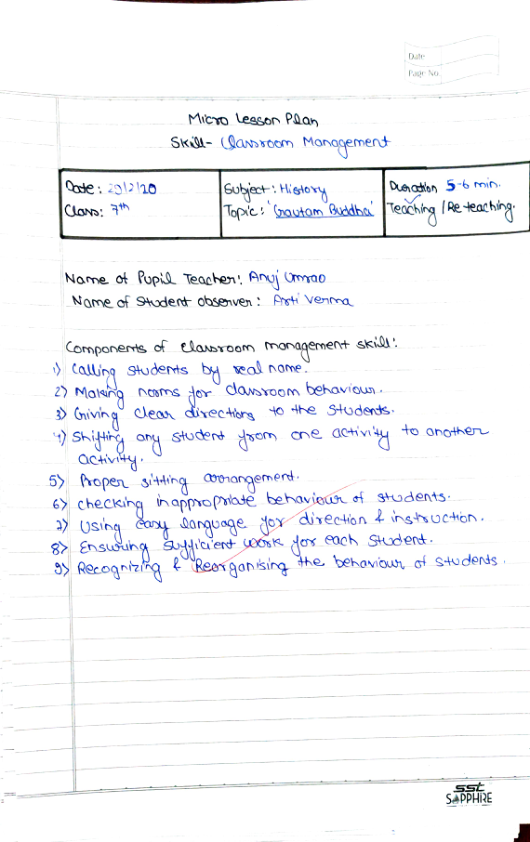 Date
Page No.
Micro Lesson Plan
Skill- Classroom Management
Date: 29/2/20
Class: 7th
Subject: History
Topic: 'Gautam Buddha'
Duration 5-6 min.
Teaching / Re teaching.
Name of Pupil Teacher: Anuj Umrao
Name of Student observer: Arti Verma
Components of classroom management skill:
1) Calling students by real name.
2) Making norms for classroom behaviour.
3) Giving clear directions to the students.
4) Shifting any student from one activity to another
activity.
5) Proper sitting arrangement.
6) checking inappropriate behaviour of students.
7) Using easy language for direction & instruction.
8) Ensuring Sufficient work for each student.
9) Recognizing & Reorganising the behaviour of students.
SSL
SAPPHIRE